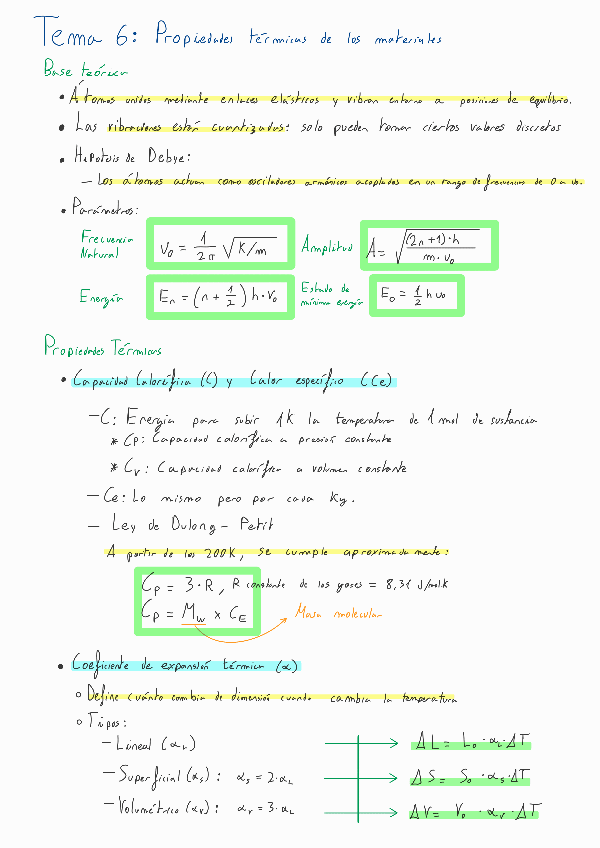 Tema 6: Propiedades térmicas de los materiales
Base teórica
• Átomos unidos mediante enlaces elásticos y vibran entorno a posiciones de equilibrio.
• Las vibraciones están cuantizadas: solo pueden tomar ciertos valores discretos
• Hipótesis de Debye:
— Los átomos actúan como osciladores armónicos acoplados en un rango de frecuencias de 0 a υ₀.
• Parámetros:
Frecuencia Natural υ₀ = 1/2π √K/m Amplitud A = √(2n+1)·h / m·υ₀
Energía Eₙ = (n + 1/2) h·υ₀ Estado de mínima energía E₀ = 1/2 h υ₀
Propiedades Térmicas
• Capacidad Calorífica (C) y Calor específico (Ce)
— C: Energía para subir 1K la temperatura de 1 mol de sustancia
* Cp: Capacidad calorífica a presión constante
* Cv: Capacidad calorífica a volumen constante
— Ce: Lo mismo pero por cada Kg.
— Ley de Dulong - Petit
A partir de los 200K, se cumple aproximadamente:
Cp = 3·R, R constante de los gases = 8,31 J/mol·K
Cp = Mw x CE Masa molecular
• Coeficiente de expansión térmica (α)
○ Define cuánto cambia de dimensión cuando cambia la temperatura
○ Tipos:
— Lineal (αL) → ΔL = L₀ · αL · ΔT
— Superficial (αs): αs = 2·αL → ΔS = S₀ · αs · ΔT
— Volumétrico (αv): αv = 3·αL → ΔV = V₀ · αv · ΔT